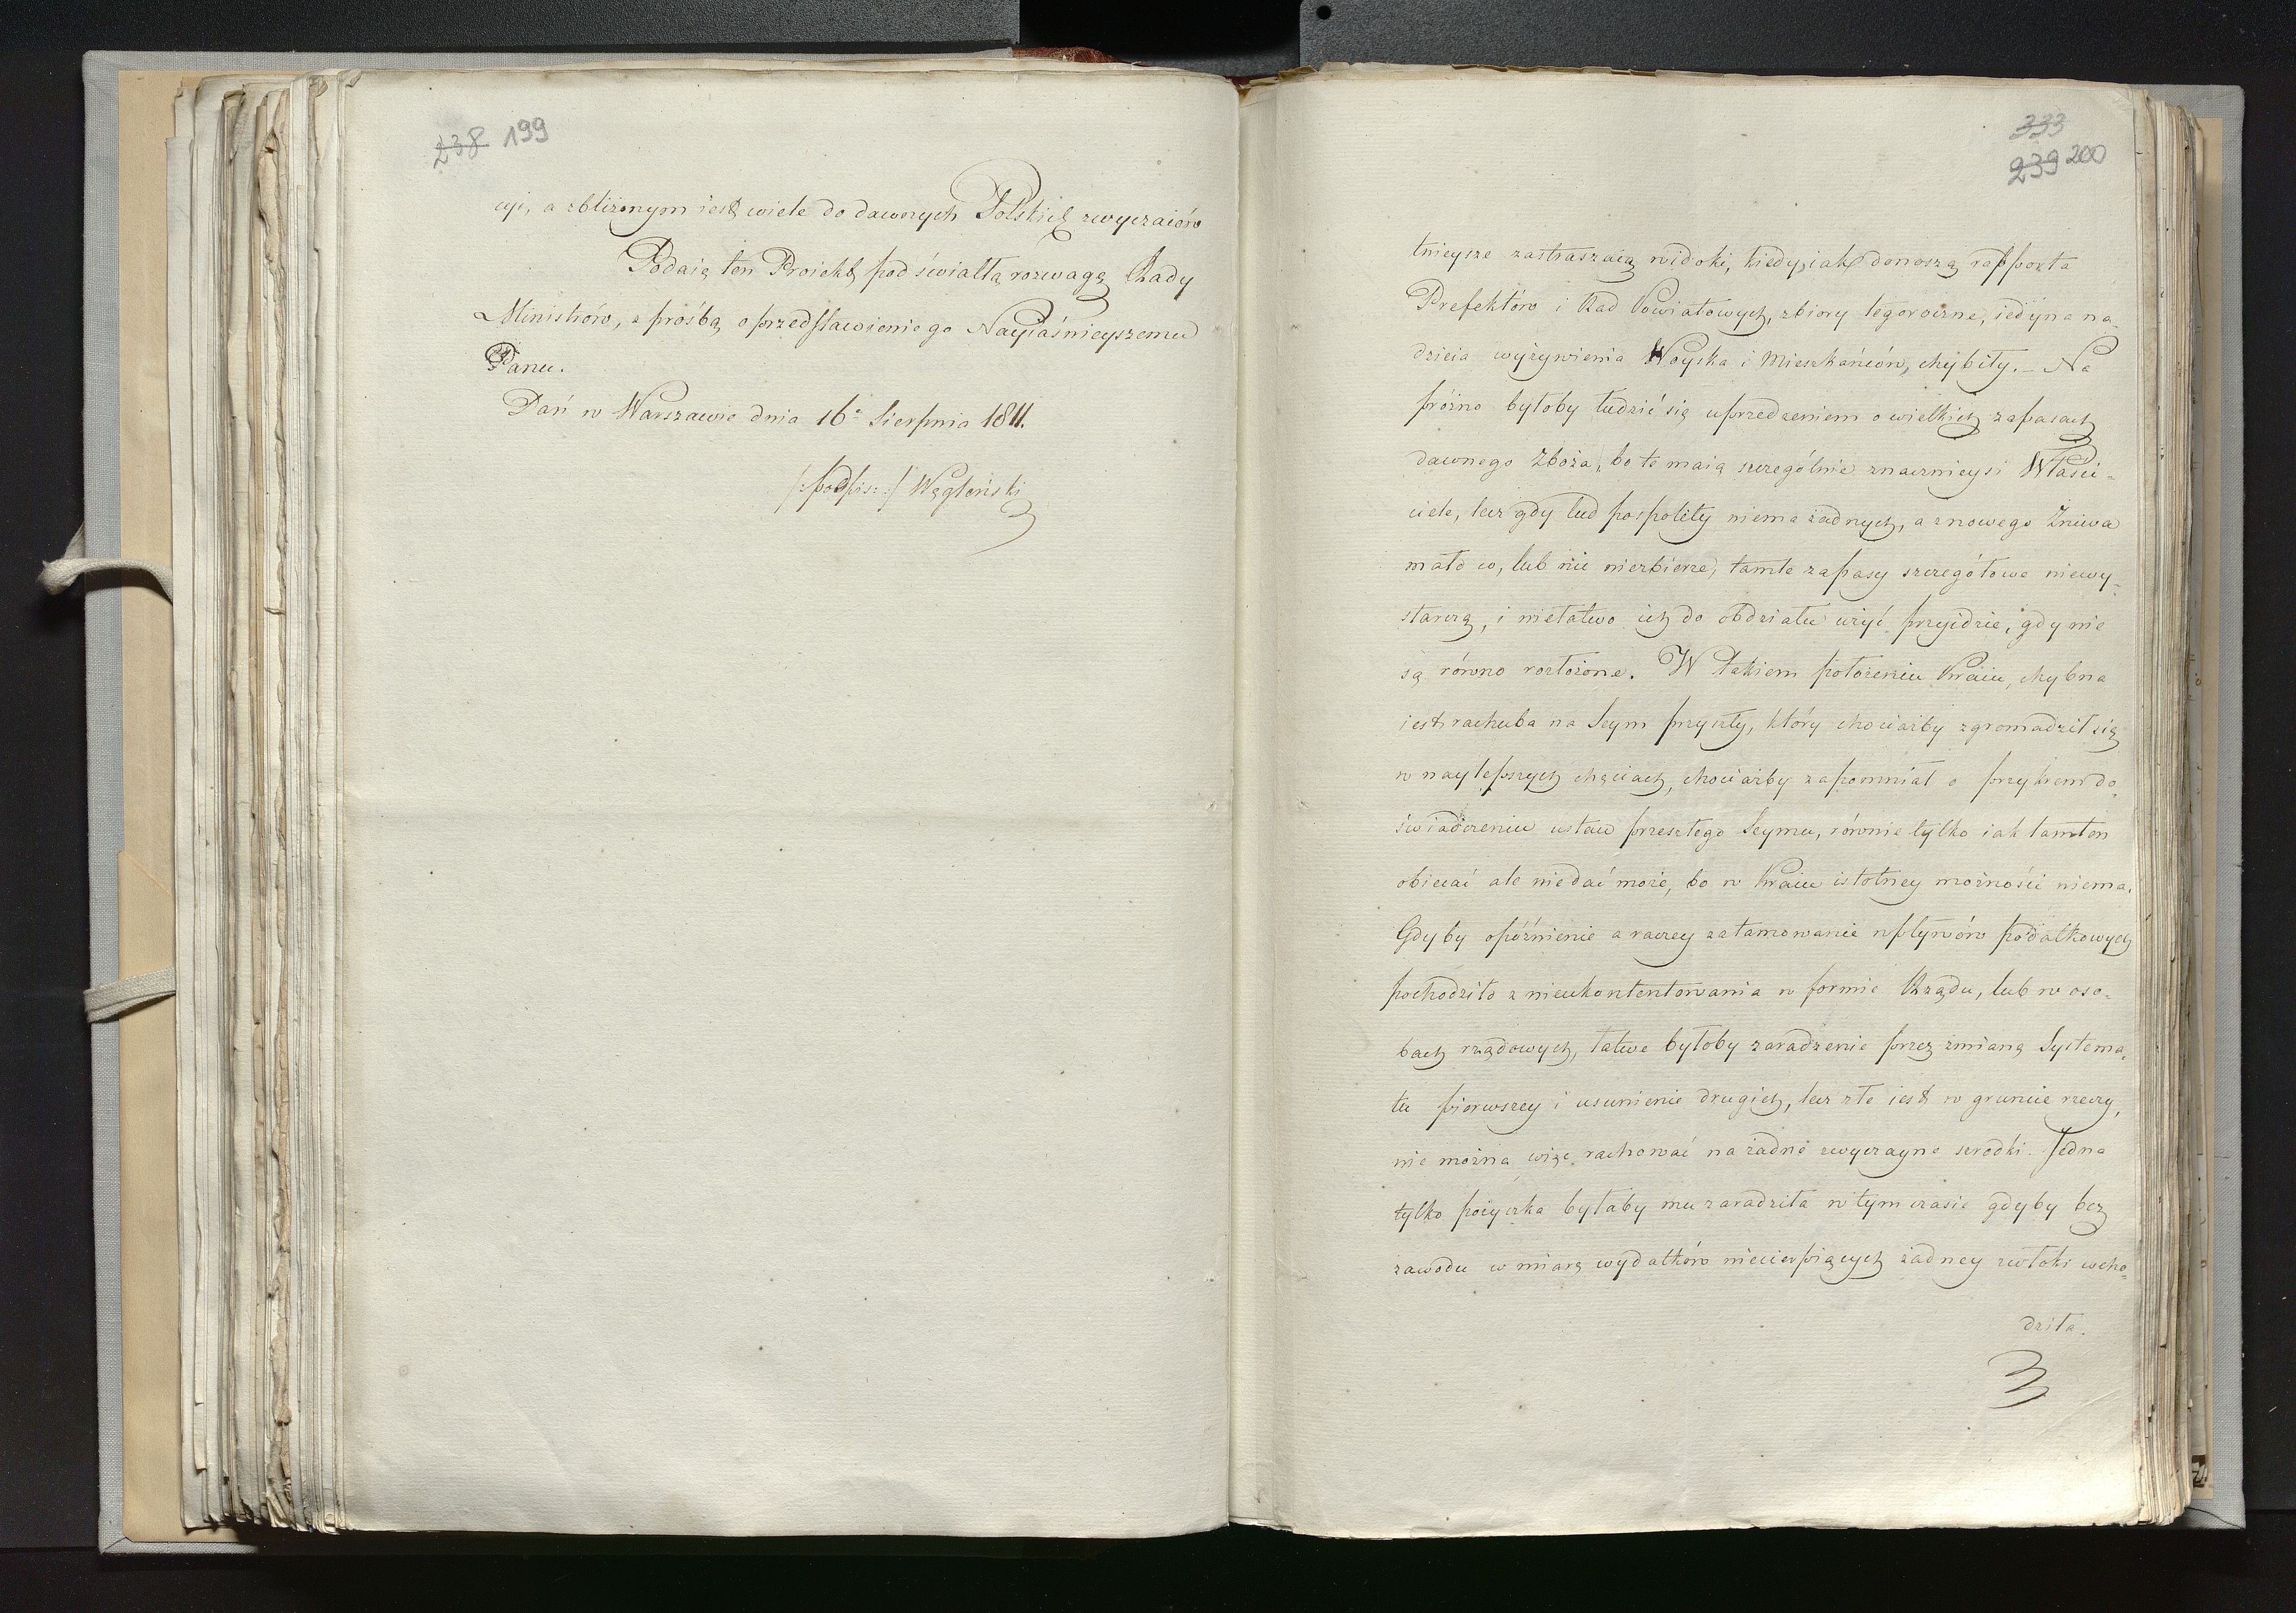 238 199
cyi, a zbliżonym iest wiele do dawnych Polskich zwyczaiów
Podaię ten Proiekt pod światłą rozwagę Rady
Ministrów, z prośbą o przedstawienie go Nayiaśnieyszemu
Panu.
Dań w Warszawie dnia 16° Sierpnia 1811.
/:podpis:/ Węgleński
333
239 200
tnieysze zastraszaią widoki, kiedy, iak donoszą rapporta
Prefektów i Rad Powiatowych, zbiory tegoroczne, iedyna na-
dzieia wyżywienia Woyska i Mieszkańców, chybiły. – Na
próżno byłoby łudzić się uprzedzeniem o wielkich zapasach
dawnego Zboża, bo te maią szczególnie znacznieysi Właści-
ciele, lecz gdy lud pospolity niema żadnych, a z nowego Żniwa
mało co, lub nic niezbierze, tamte zapasy szczegółowe niewy-
starczą, i niełatwo ich do obdziału użyć przyidzie, gdy nie
są równo rozłożone. W takiem położeniu Kraiu, chybna
iest rachuba na Seym przyszły, który chociażby zgromadził się
w naylepszych chęciach, chociażby zapomniał o przykrem do-
świadczeniu ustaw przeszłego Seymu, równie tylko iak tamten
obiecać ale niedać może, bo w Kraiu istotney możności niema.
Gdyby opóźnienie a raczey zatamowanie wpływów podatkowych
pochodziło z nieukontentowania w formie Rządu, lub w oso-
bach rządowych, łatwe byłoby zaradzenie przez zmianę Systema-
tu pierwszey i usunienie drugich, lecz złe iest w gruncie rzeczy,
nie można więc rachować na żadne zwyczayne srodki. Jedna
tylko pożyczka byłaby mu zaradziła w tym czasie gdyby bez
zawodu w miarę wydatków niecierpiących żadney zwłoki wcho-
dziła.